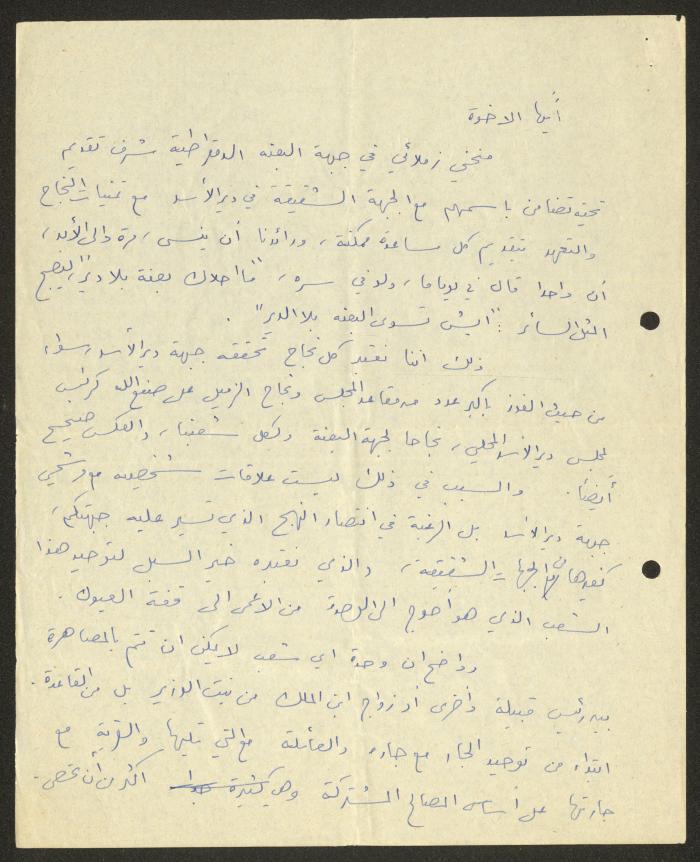 أيها الاخوة
منحني زملائي في جبهة البعنه الدمقراطية شرف تقديم
تحية تضامن باسمهم مع الجبهة الشقيقة في دير الأسد مع تمنيات النجاح
والتعهد بتقديم كل مساعدة ممكنة، ورائدنا أن ينسى، مرة والى الأبد،
أن واحدا قال في يوم ما، ولو في سره، "ما احلاك بعنة بلا دير"، ليصبح
المثل السائر: "ايش تسوى البعنه بلا الدير".
ذلك اننا نعتبر كل نجاح تحققه جبهة دير الأسد، سواء
من حيث الفوز باكبر عدد من مقاعد المجلس ونجاح الزميل علي صنع الله كرئيس
لمجلس دير الأسد المحلي، نجاحا لجبهة البعنة ولكل شعبنا، والعكس صحيح
أيضا. والسبب في ذلك ليست علاقات شخصيه مع مرشحي
جبهة دير الأسد بل الرغبة في انتصار النهج الذي تسير عليه جبهتكم،
كغيرها من الجبهات الشقيقة، والذي نعتبره خير السبل لتوحيد هذا
الشعب الذي هو أحوج الى الوحدة من الاعمى الى قفة العيون.
وواضح ان وحدة اي شعب لا يمكن ان تتم بالمصاهرة
بين رئيس قبيلة وأخرى أو زواج ابن الملك من بنت الوزير بل من القاعدة.
ابتداء من توحيد الجار مع جاره والعائلة مع التي تليها والقرية مع
جارتها على أساس المصالح المشتركة وهي كثيرة جدا اكثر من أن تحصى.